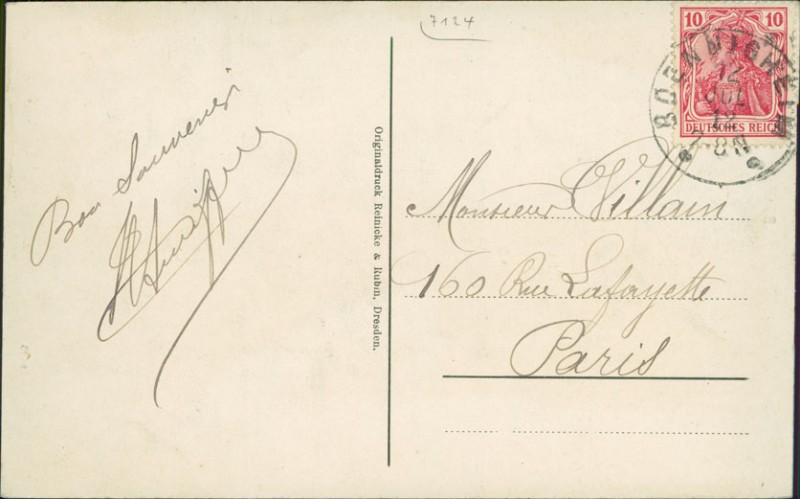 7124
10 10
DEUTSCHES REICH
12
8-9N
Bon Souvenir
Originaldruck Reinicke & Rubin, Dresden.
Monsieur Villain
160 Rue Lafayette
Paris